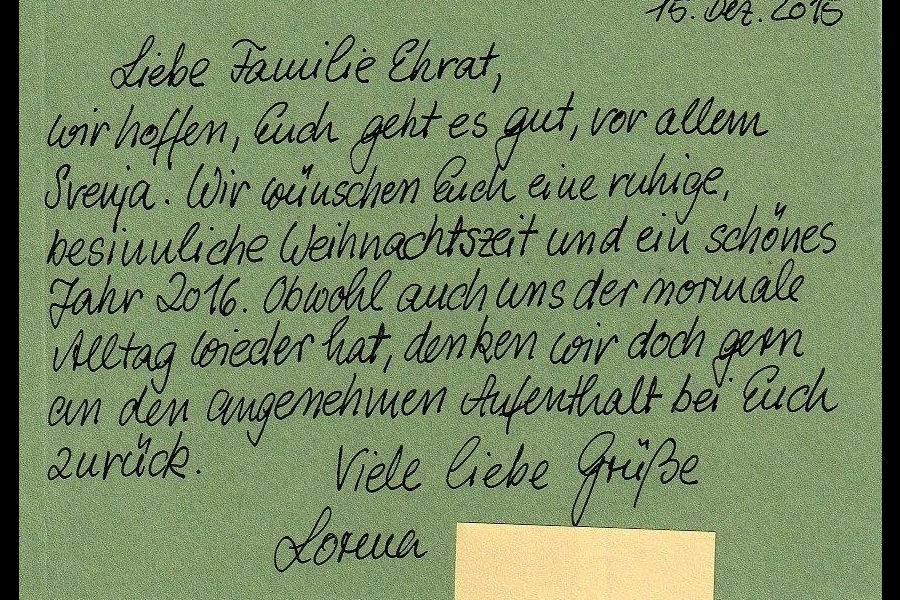 15. Dez. 2015
Liebe Familie Ehrat,
wir hoffen, Euch geht es gut, vor allem
Svenja. Wir wünschen Euch eine ruhige,
besinnliche Weihnachtszeit und ein schönes
Jahr 2016. Obwohl auch uns der normale
Alltag wieder hat, denken wir doch gern
an den angenehmen Aufenthalt bei Euch
zurück. Viele liebe Grüße
Lorena